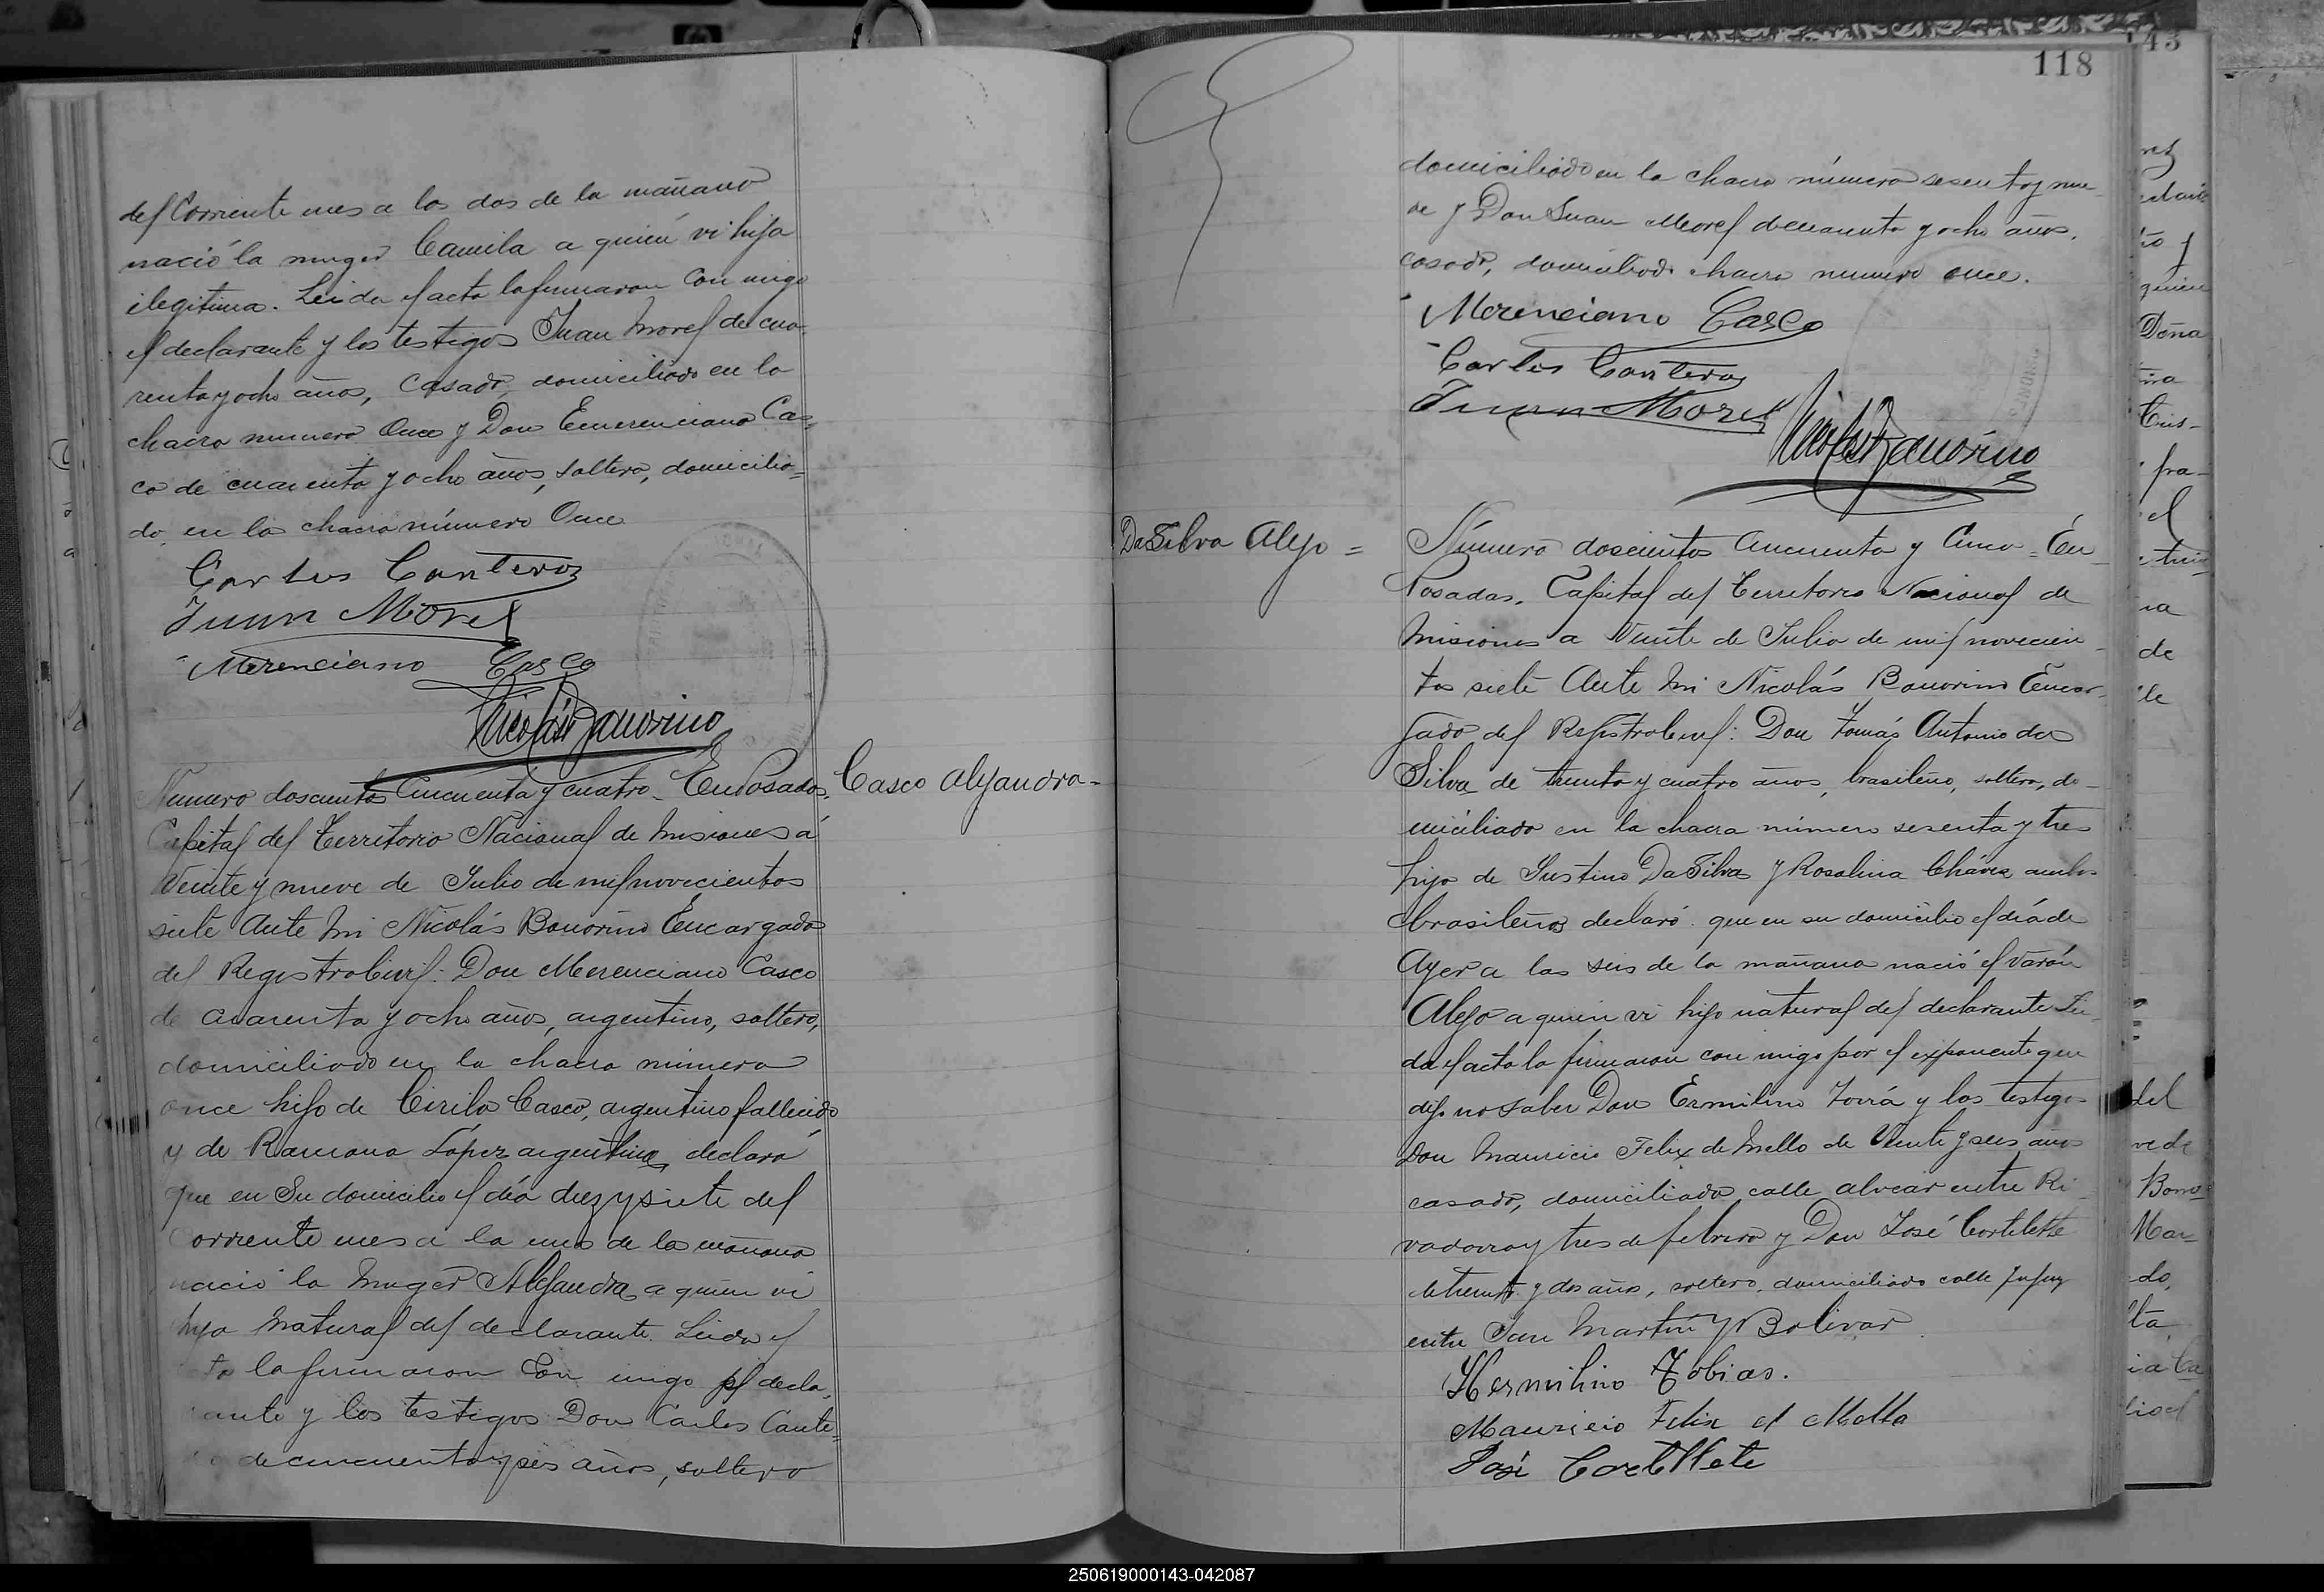 del Corriente mes a las dos de la mañana
nació la muger Camila a quien vi hija
ilegitima. Leida el acta la firmaron con migo
el declarante y los testigos Juan Morel de cua-
renta y ocho años, casado, domiciliado en la
chacra numero Once y Don Emerenciano Cas=
co de cuarenta y ocho años, soltero, domicilia=
do en la chacra número Once
Carlos Canteros
Juan Morel
Merenciano Casco
Nicolás Bonorino
Numero doscientos Cincuenta y cuatro - En Posadas,
Casco Alejandra -
Capital del Territorio Nacional de Misiones á
Veinte y nueve de Julio de mil novecientos
siete Ante Mi Nicolás Bonorino Encargado
del Registro Civil: Don Merenciano Casco
de cuarenta y ocho años, argentino, soltero,
domiciliado en la chacra número
once hijo de Cirilo Casco, argentino fallecido
y de Ramona López argentina, declaró
que en su domicilio el día diez y siete del
Corriente mes a la una de la mañana
nació la muger Alejandra a quien vi
hija natural del declarante. Leida el
acta la firmaron con migo el decla-
rante y los testigos Don Carlos Cante=
ro de cincuenta y seis años, soltero
118
domiciliado en la chacra número sesenta y nue-
ve y Don Juan Morel de cuarenta y ocho años,
casado, domiciliado chacra numero once.
Merenciano Casco
Carlos Canteros
Juan Morel
Nicolás Bonorino
Da Silva Alejo =
Número doscientos cincuenta y Cinco = En
Posadas, Capital del Territorio Nacional de
Misiones a Veinte de Julio de mil novecien-
tos siete Ante Mi Nicolás Bonorino Encar-
gado del Registro Civil: Don Tomás Antonio da
Silva de treinta y cuatro años, brasileño, soltero, do-
miciliado en la chacra número sesenta y tres
hijo de Justino Da Silva y Rosalina Chávez ambos
brasileños declaró que en su domicilio el día de
Ayer a las seis de la mañana nació el varón
Alejo a quien vi hijo natural del declarante Lei-
da el acta la firmaron con migo por el exponente que
dijo no saber Don Ermilino y los testigos
Don Mauricio Felix de Mello de Veinte y seis años
casado, domiciliado calle alvear entre Ri-
vadavia y tres de febrero y Don José Cortellette
de treinta y dos años, soltero, domiciliado calle Jujuy
entre San Martín y Bolivar
Hermilino Tobias.
Mauricio Felix d Mello
José Cortellete
250619000143-042087